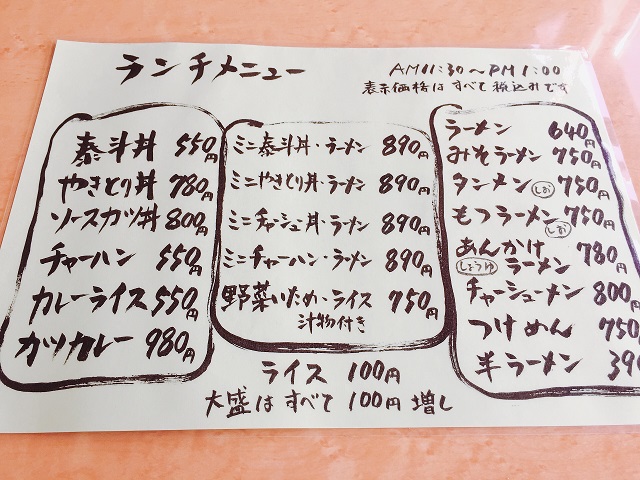 ランチメニュー
AM11:30～PM1:00
表示価格はすべて税込みです
泰斗丼 550円
やきとり丼 780円
ソースカツ丼 800円
チャーハン 550円
カレーライス 550円
カツカレー 980円
ミニ泰斗丼・ラーメン 890円
ミニやきとり丼・ラーメン 890円
ミニチャーシュ丼・ラーメン 890円
ミニチャーハン・ラーメン 890円
野菜いため・ライス 750円
汁物付き
ラーメン 640円
みそラーメン 750円
タンメン しお 750円
もつラーメン 750円
しお
あんかけ 780円
しょうゆ ラーメン
チャーシューメン 800円
つけめん 750円
半ラーメン 390
ライス 100円
大盛はすべて100円増し